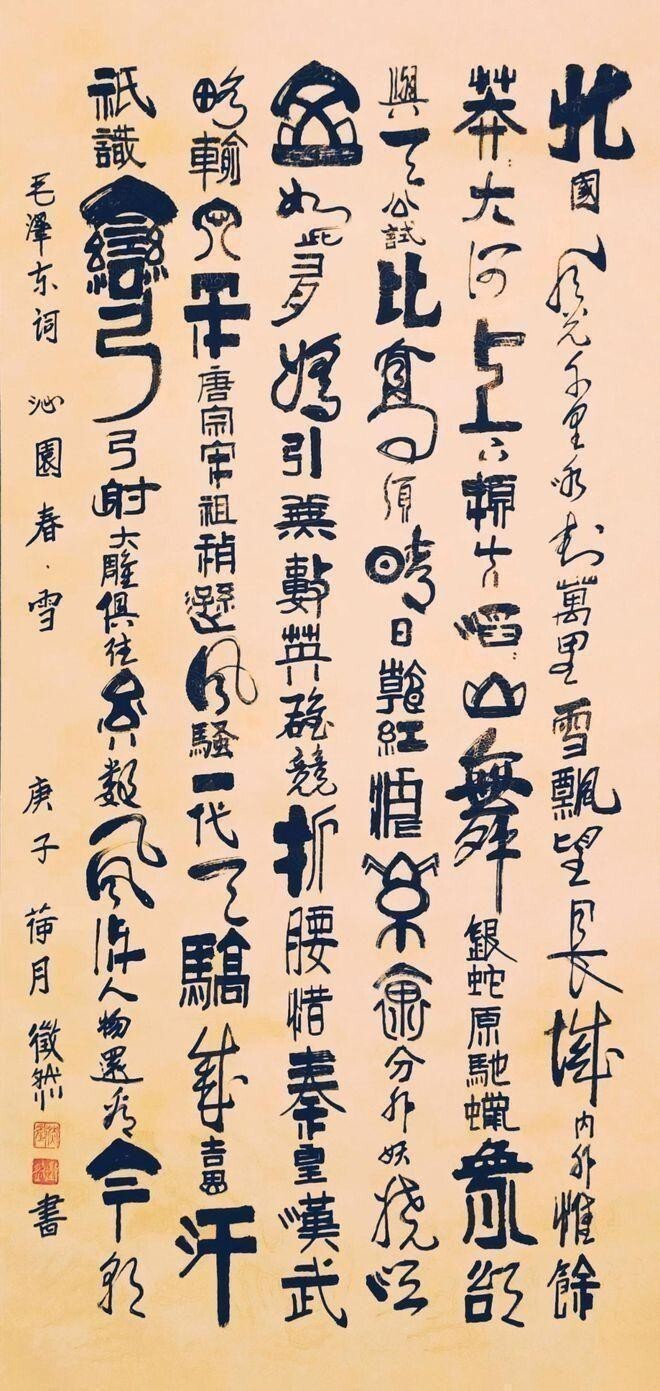 北國風光千里冰封萬里雪飄望長城內外惟餘
莽〻大河上下頓失滔〻山舞銀蛇原馳蠟象欲
與天公試比高須晴日看紅裝素裹分外妖嬈江
山如此多嬌引無數英雄競折腰惜秦皇漢武
略輸文采唐宗宋祖稍遜風騷一代天驕成吉思汗
祇識彎弓射大雕俱往矣數風流人物還看今朝
毛澤东詞 沁園春·雪 庚子荷月 徵然書